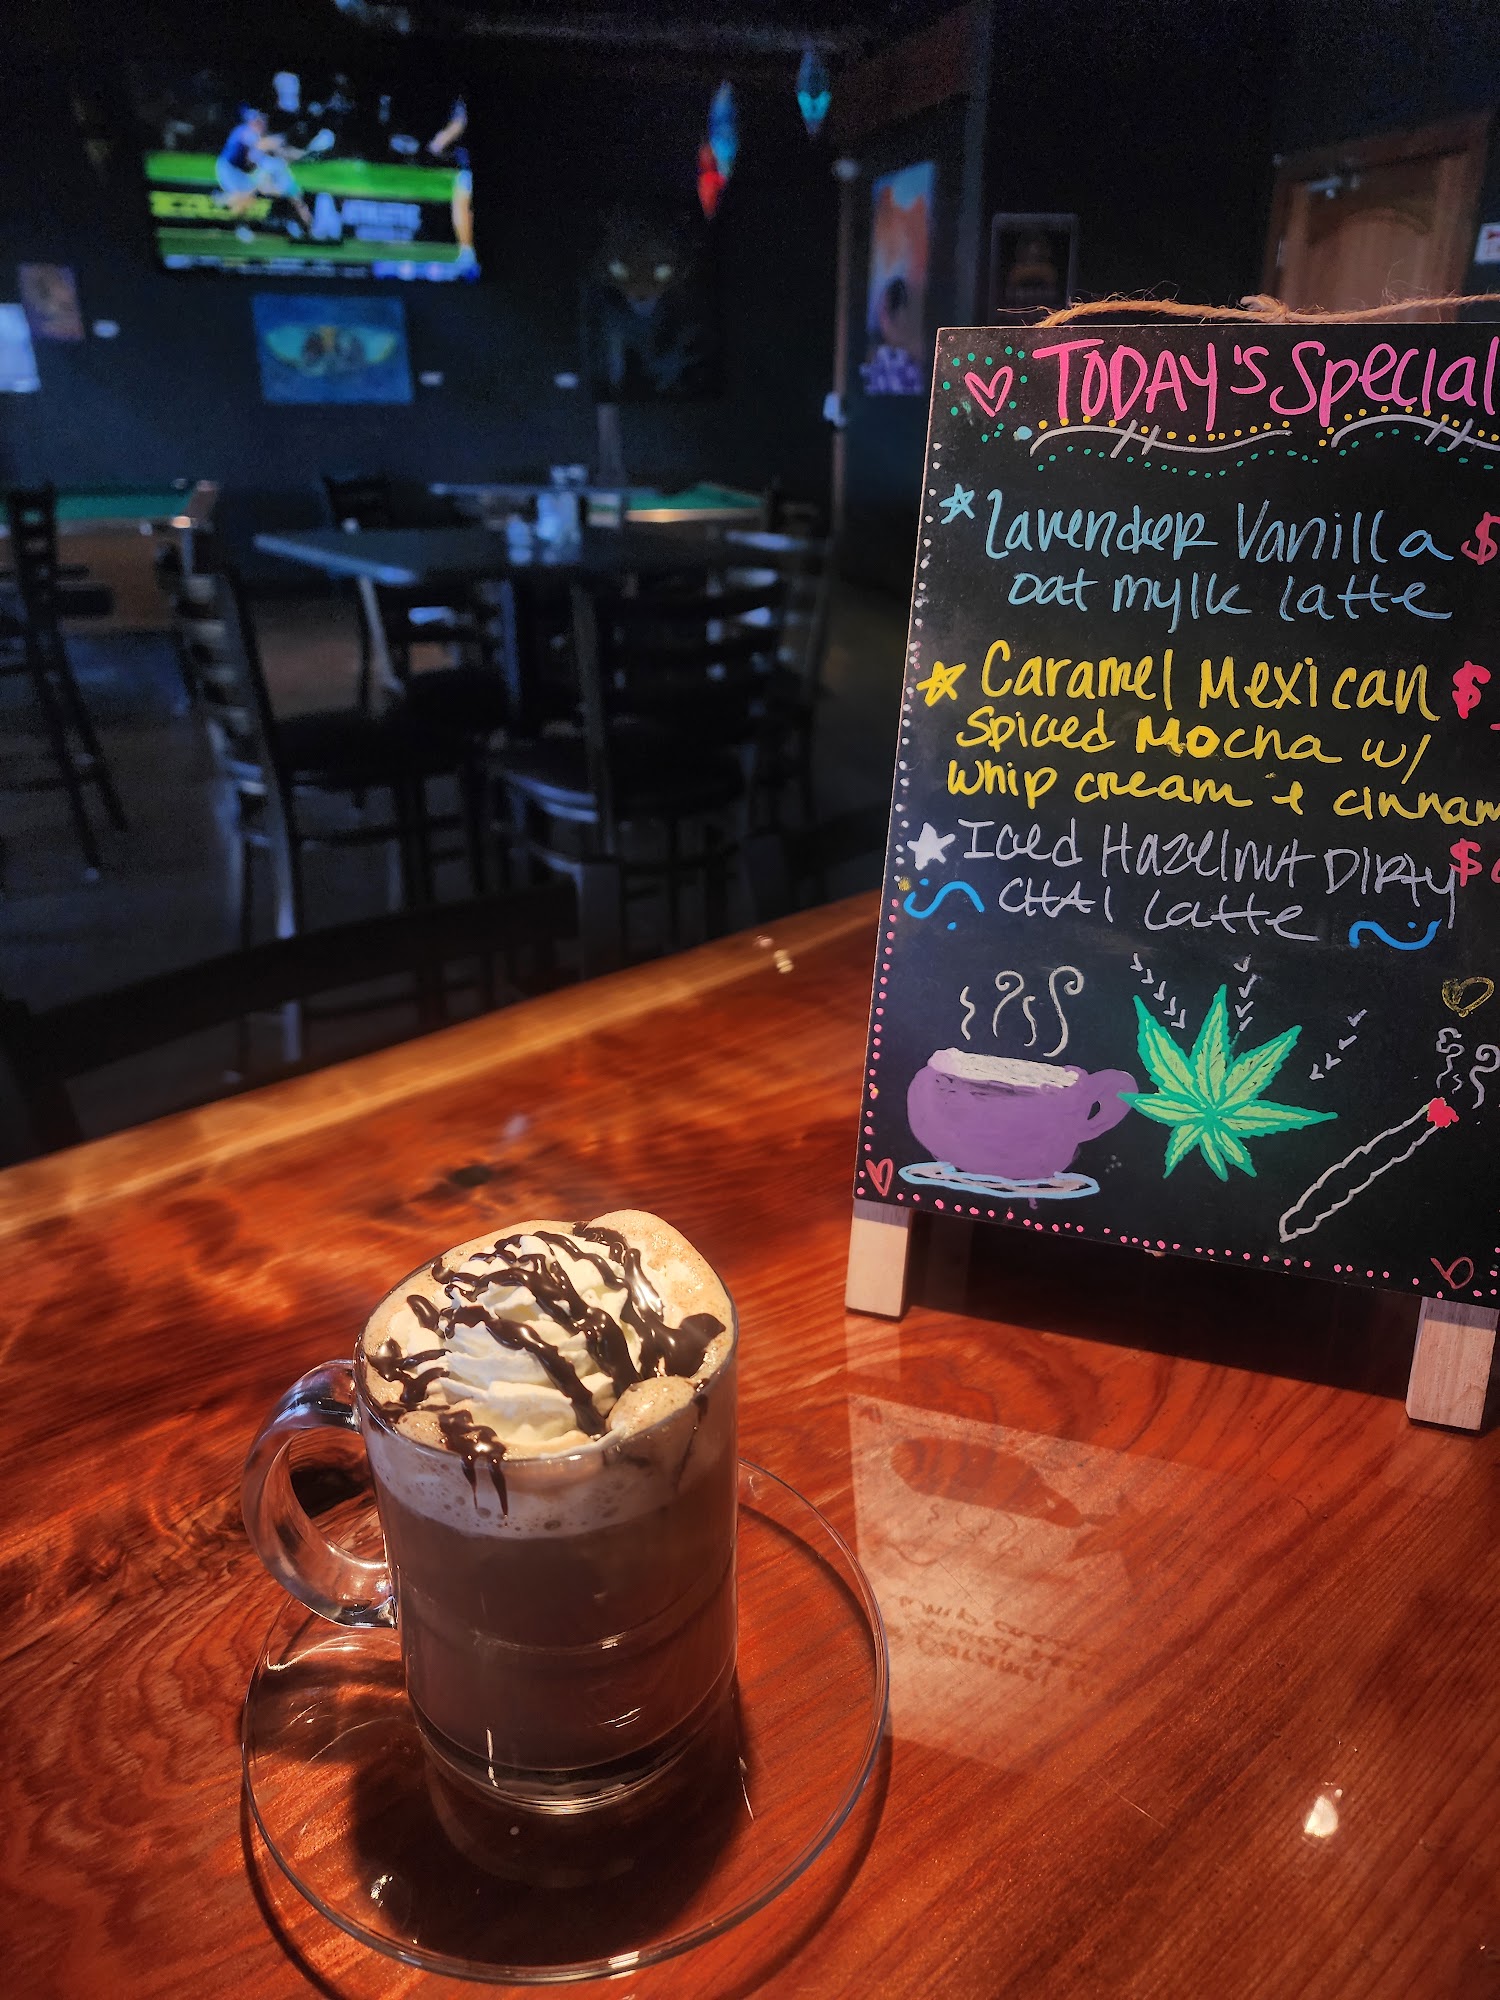 TODAY'S Special
Lavender Vanilla $
oat mylk Latte
Caramel Mexican $
Spiced Mocha w/
whip cream & cinnam
Iced Hazelnut DIRTY $
CHAI Latte